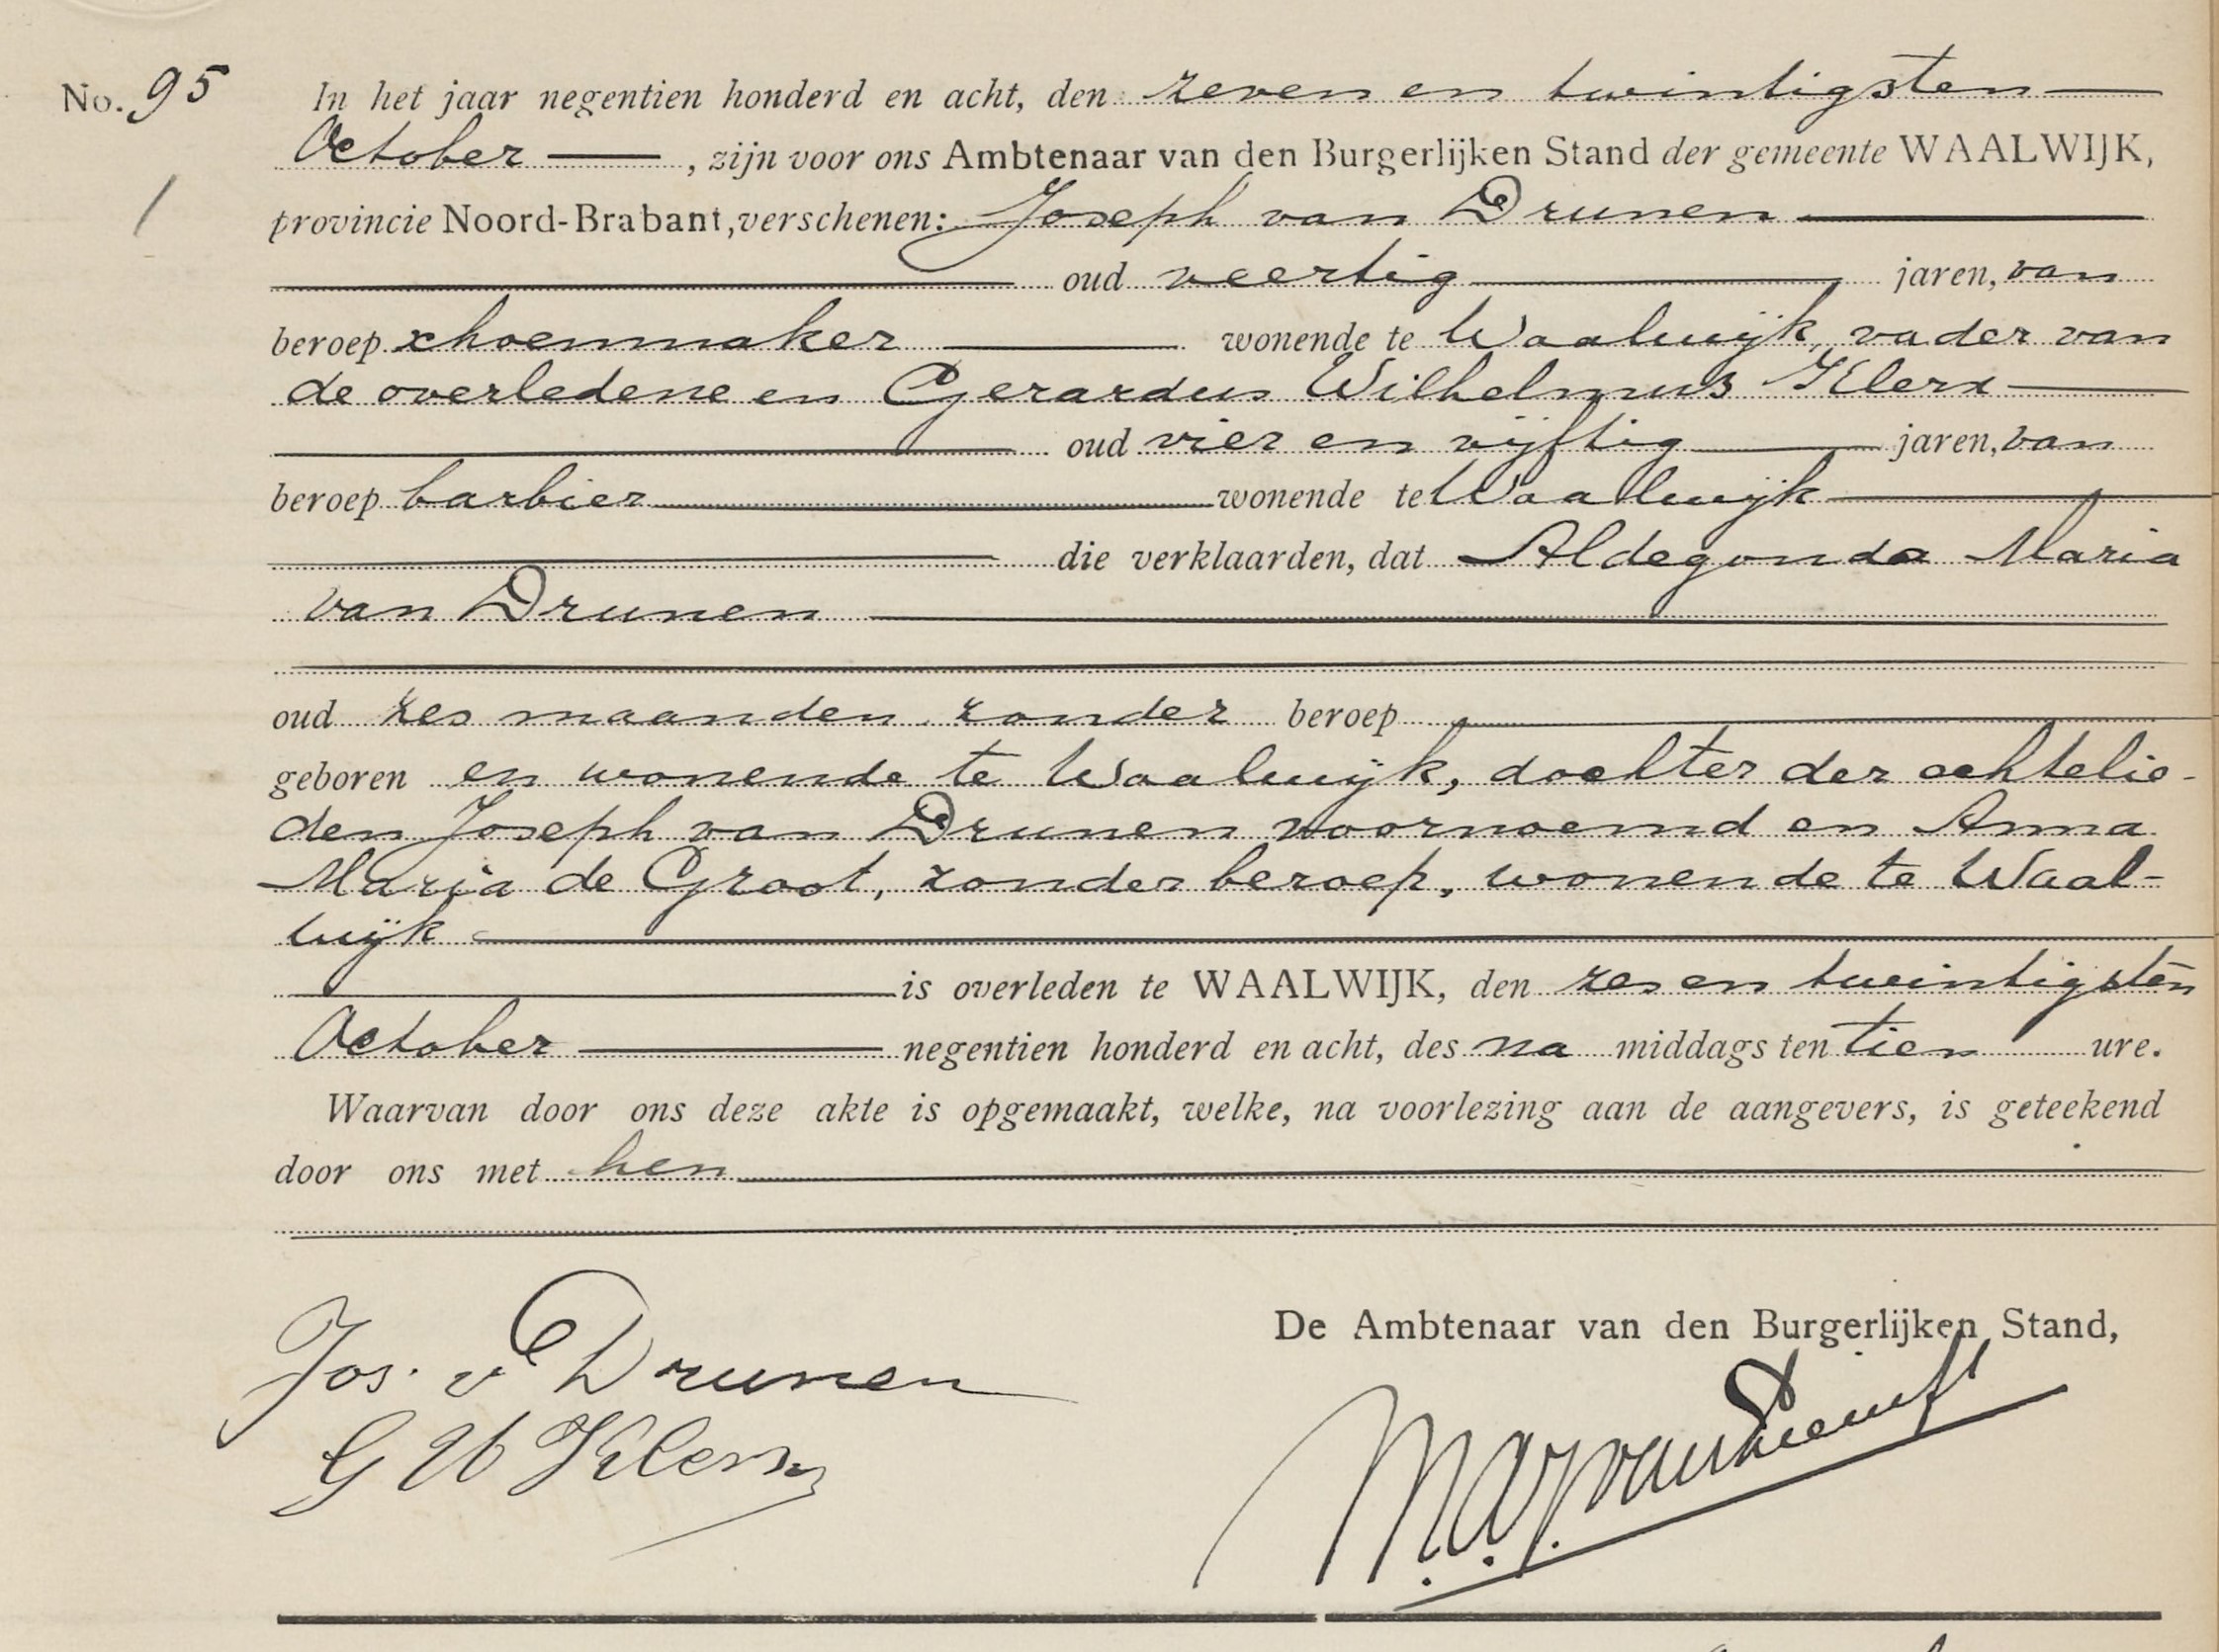 No. 95 In het jaar negentien honderd en acht, den zeven en twintigsten
October, zijn voor ons Ambtenaar van den Burgerlijken Stand der gemeente WAALWIJK,
provincie Noord-Brabant, verschenen: Joseph van Drunen
oud veertig jaren, van
beroep schoenmaker wonende te Waalwijk, vader van
de overledene en Gerardus Wilhelmus Klerx
oud vier en vijftig jaren, van
beroep barbier wonende te Waalwijk
die verklaarden, dat Aldegonda Maria
van Drunen
oud zes maanden zonder beroep
geboren en wonende te Waalwijk, dochter der echtelie-
den Joseph van Drunen voornoemd en Anna
Maria de Groot, zonder beroep, wonende te Waal-
wijk
is overleden te WAALWIJK, den zes en twintigsten
October negentien honderd en acht, des na middags ten tien ure.
Waarvan door ons deze akte is opgemaakt, welke, na voorlezing aan de aangevers, is geteekend
door ons met hen
De Ambtenaar van den Burgerlijken Stand,
Jos. v Drunen
G W Klerx